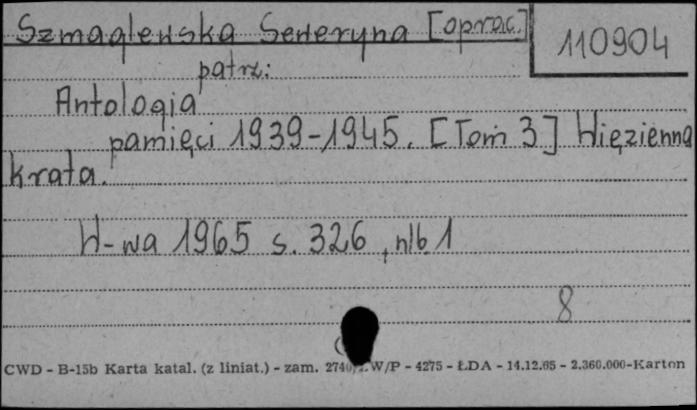 Szmaglewska Seweryna [oprac.]
110904
patrz:
Antologia
pamięci 1939-1945. [Tom 3] Więzienna
krata.
W-wa 1965 s. 326, nlb. 1
8
CWD - B-15b Karta katal. (z liniat.) - zam. 2740 W/P - 4275 - ŁDA - 14.12.65 - 2.360.000-Karton